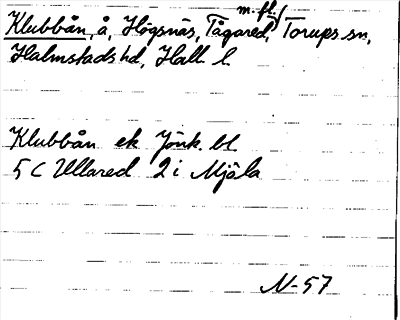 m. fl.
Klubbån, å, Högsnäs, Tågared, Torups sn,
Halmstads hd, Hall. l.
Klubbån ek Jönk bl
5 C Ullared 2 i Mjäla
N-57